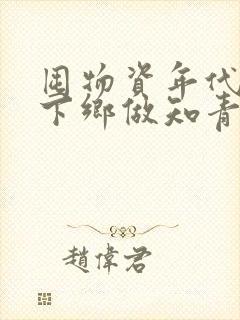 囤物資年代
下鄉做知青
趙偉君